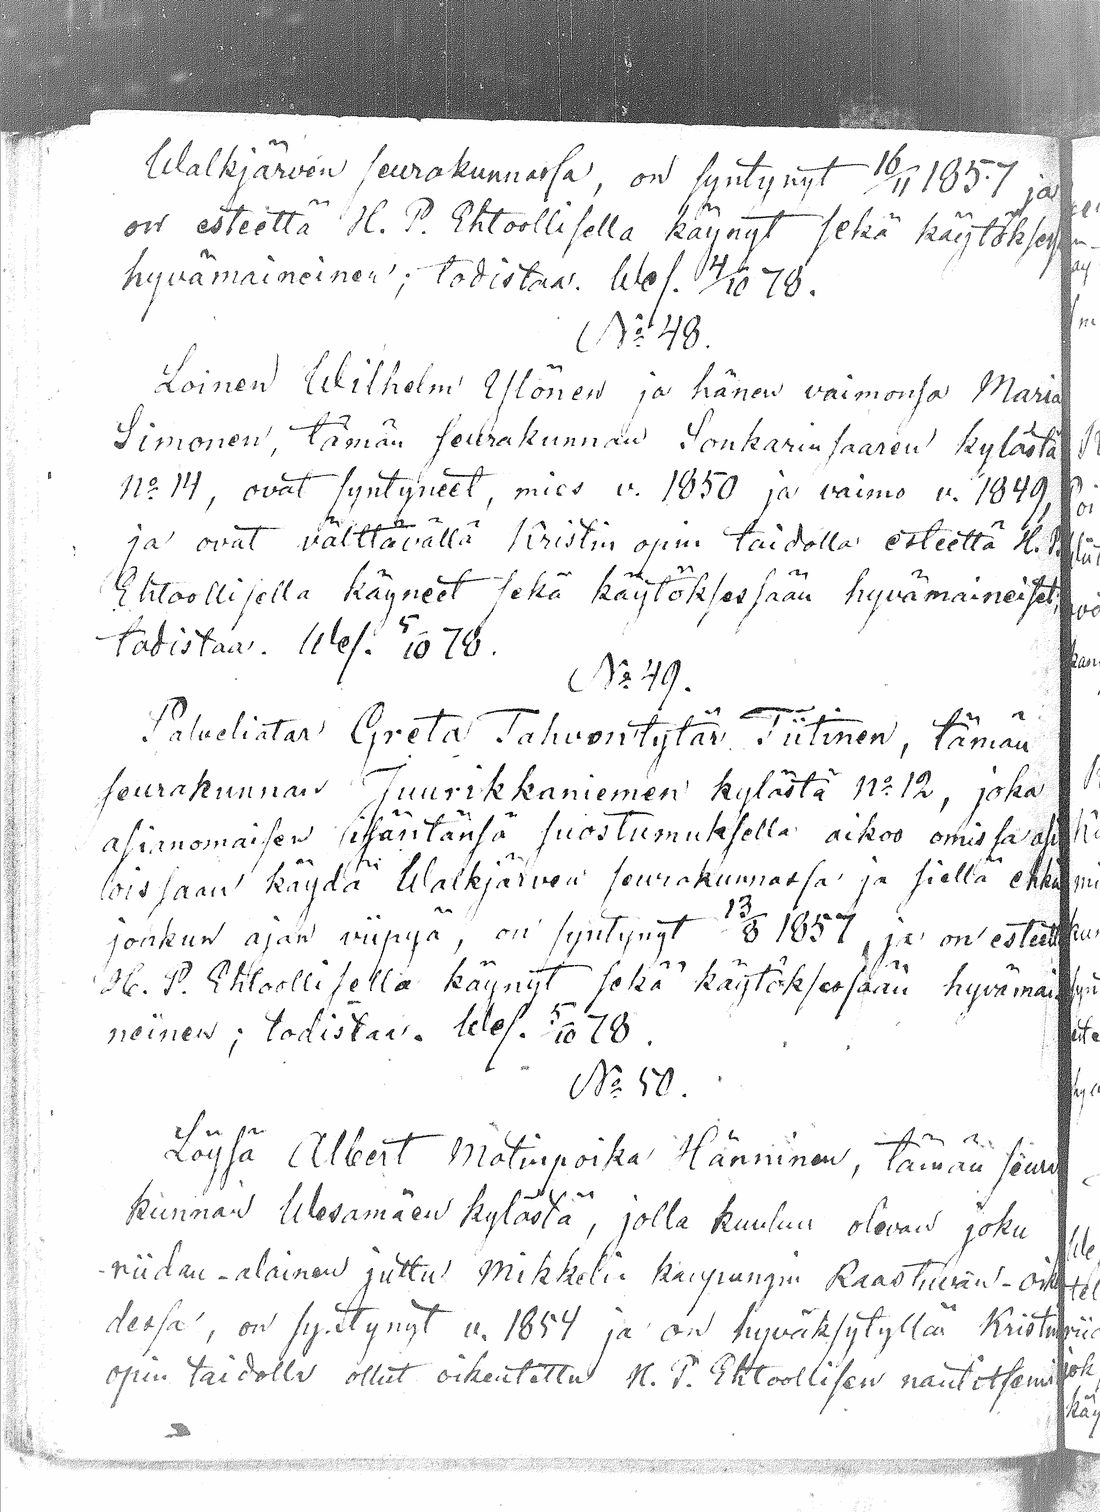 Walkjärven seurakunnassa, on syntynyt 16/11 1857 ja
on esteettä H. P. Ehtoollisella käynyt sekä käytökses
hyvämaineinen; todistaa. Wes. 4/10 78.
No 48.
Loinen Wilhelm Ylönen ja hänen vaimonsa Maria
Simonen, tämän seurakunnan Sonkarinsaaren kylästä
No 14, ovat syntyneet, mies v. 1850 ja vaimo v. 1849,
ja ovat välttävällä Kristin opin taidolla esteettä H. P.
Ehtoollisella käyneet sekä käytöksessään hyvämaineiset;
todistaa. Wes. 5/10 78.
No 49.
Palveliatar Greta Tahvontytär Tiitinen, tämän
seurakunnan Juurikkaniemen kylästä No 12, joka
asianomaisen isäntänsä suostumuksella aikoo omissa asi
oissaan käydä Walkjärven seurakunnassa ja siellä ehkä
jonkun ajan viipyä, on syntynyt 13/8 1857, ja on esteett
H. P. Ehtoollisella käynyt sekä käytöksessään hyvämai
neinen; todistaa. Wes. 5/10 78.
No 50.
Löysä Albert Matinpoika Hänninen, tämän seura
kunnan Wesamäen kylästä, jolla kuuluu olevan joku
riidan-alainen juttu Mikkelin kaupungin Raastuvan-oik
dessa, on syntynyt v. 1854 ja on hyväksytyllä Kristin
opin taidolla ollut oikeutettu H. P. Ehtoollisen nautitsemi